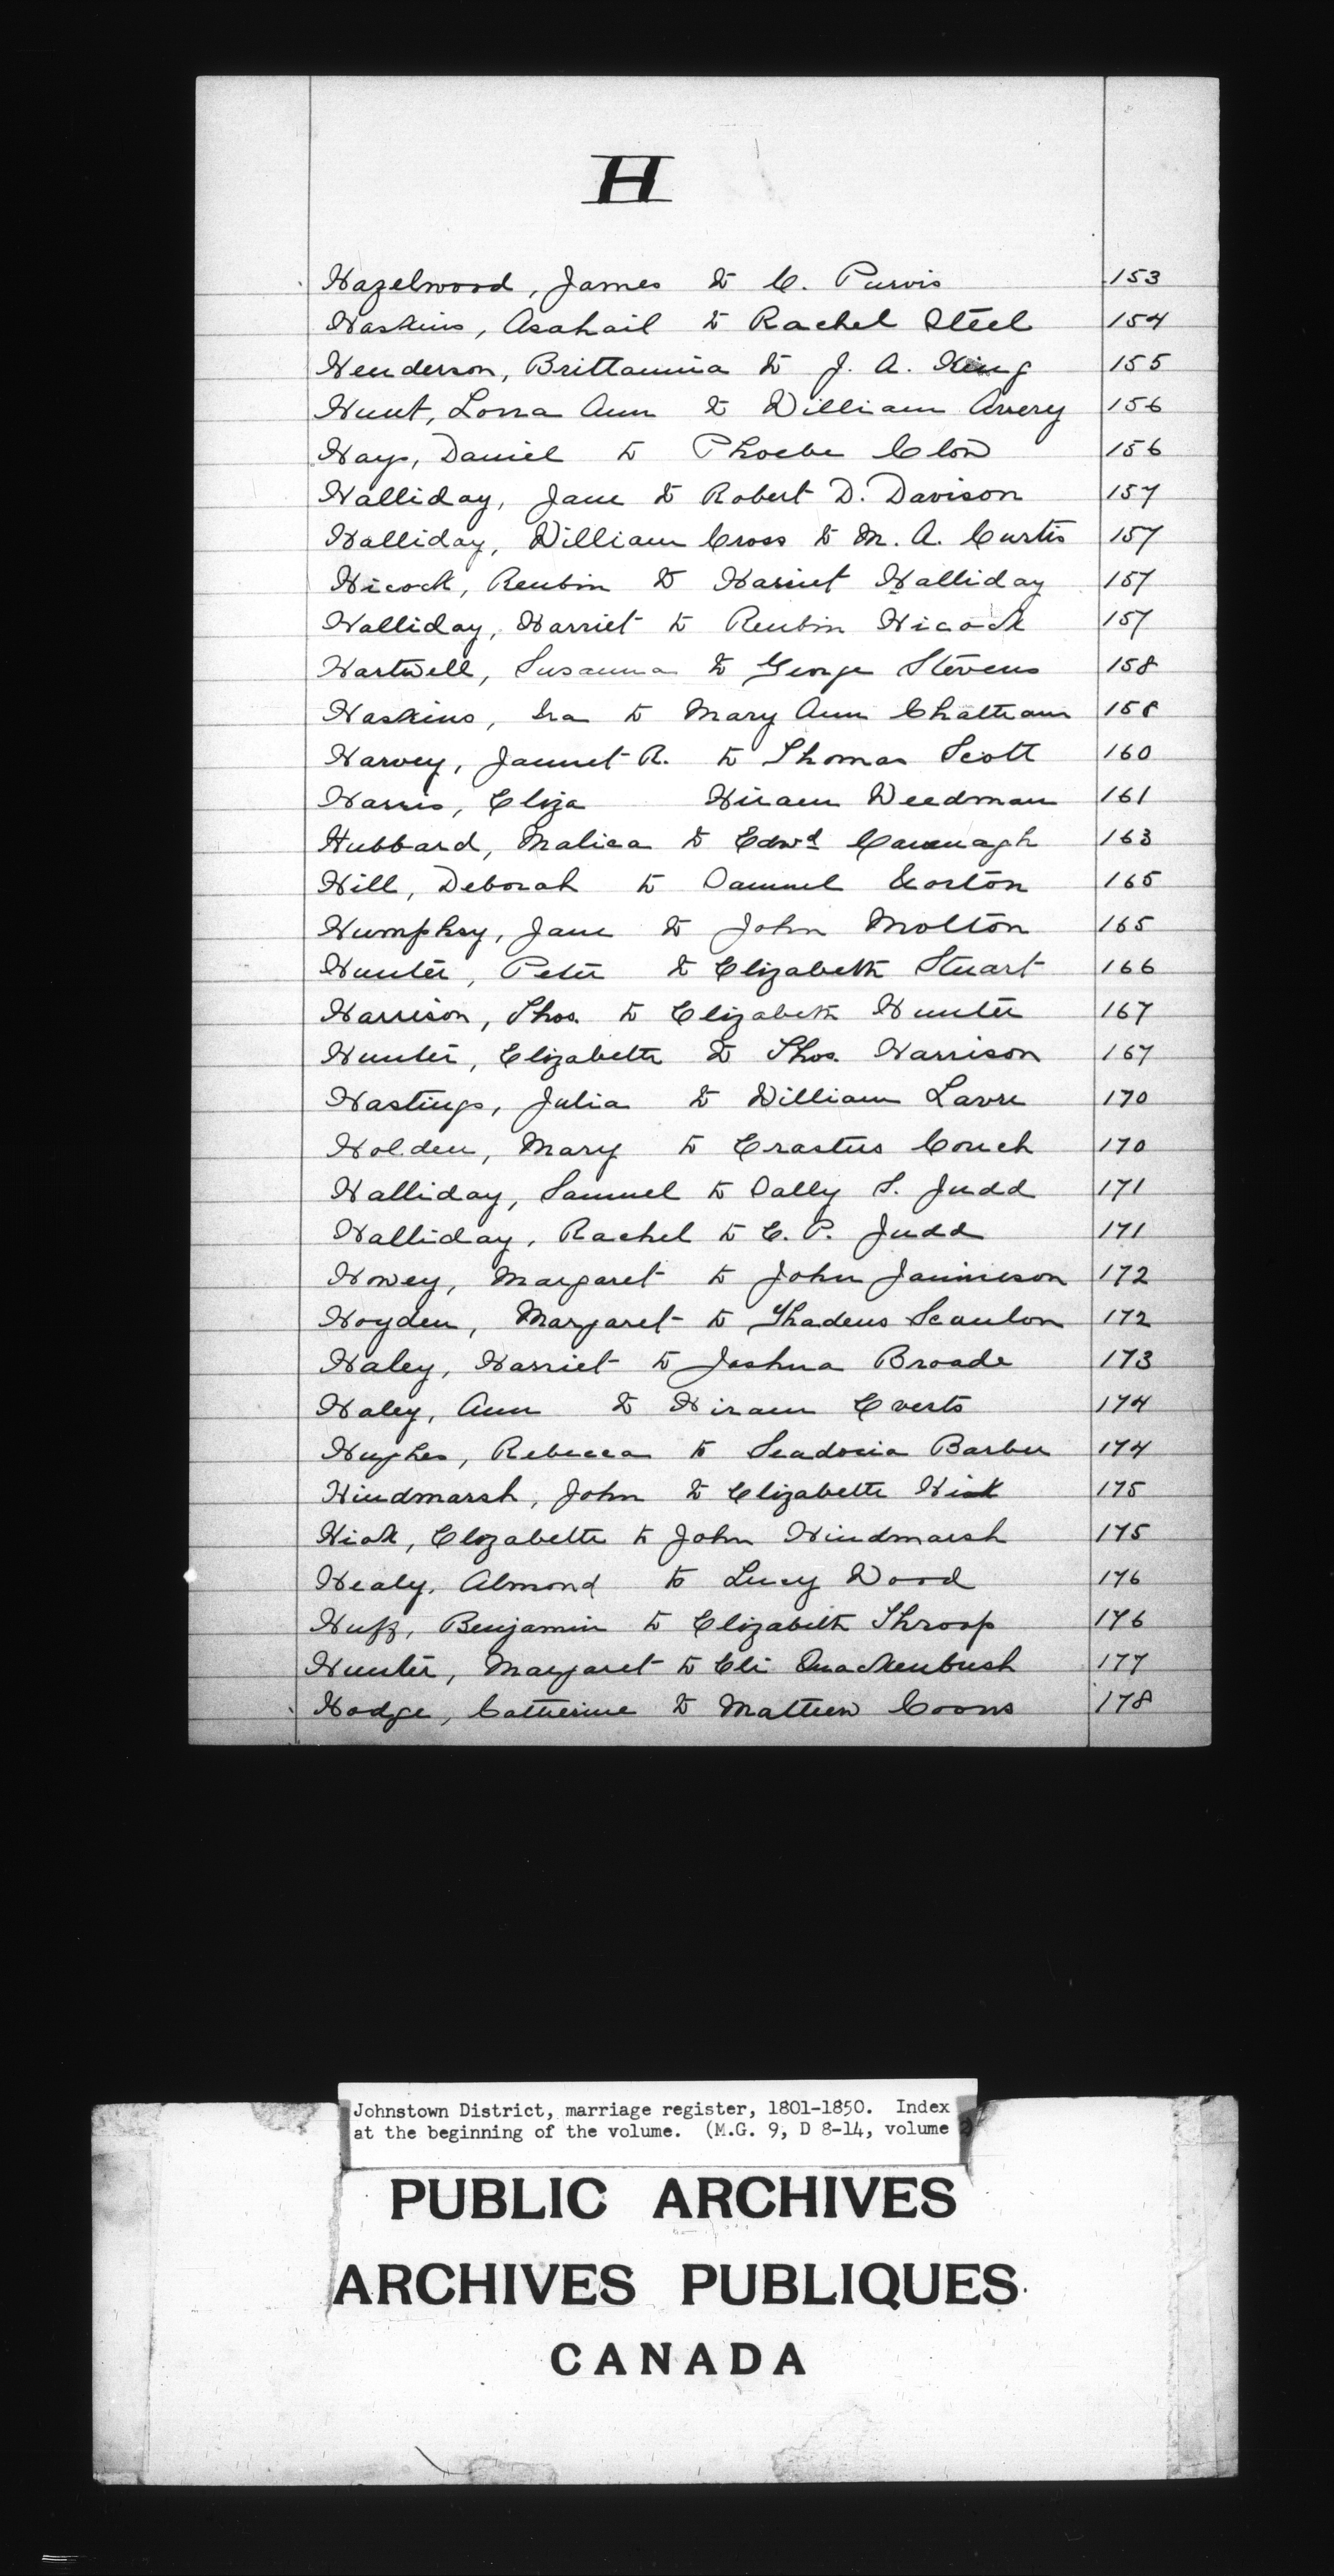 H
Hazelwood, James to C. Purvis 153
Haskins, Asahail to Rachel Steel 154
Henderson, Brittannia to J. A. King 155
Hunt, Lorra Ann to William Avery 156
Hays, Daniel to Phoebe Clow 156
Halliday, Jane to Robert D. Davison 157
Halliday, William Cross to M. A. Curtis 157
Hicock, Reubin to Harriet Halliday 157
Halliday, Harriet to Reubin Hicock 157
Hartwell, Susanna to George Stevens 158
Haskins, Ira to Mary Ann Chattam 158
Harvey, Jannet R. to Thomas Scott 160
Harris, Eliza Hiram Weedman 161
Hubbard, Malica to Edwd Cavenagh 163
Hill, Deborah to Samuel 165
Humphry, Jane to John Molton 165
Hunter, Peter to Elizabeth Stuart 166
Harrison, Thos. to Elizabeth Hunter 167
Hunter, Elizabeth to Thos. Harrison 167
Hastings, Julia to William 170
Holden, Mary to Erastus Couch 170
Halliday, Samuel to Sally S. Judd 171
Halliday, Rachel to C. P. Judd 171
Howey, Margaret to John Jaimieson 172
Hoyden, Margaret to Thadeus Scanlon 172
Haley, Harriet to Joshua Broade 173
Haley, Ann to Hiram Everts 174
Hughes, Rebecca to Barber 174
Hindmarsh, John to Elizabeth Hick 175
Hick, Elizabeth to John Hindmarsh 175
Healy, Almond to Lucy Wood 176
Huff, Benjamin to Elizabeth Throop 176
Hunter, Margaret to Eli Quackenbush 177
Hodge, Catherine to Mathew Coons 178
Johnstown District, marriage register, 1801-1850. Index
at the beginning of the volume. (M.G. 9, D 8-14, volume
PUBLIC ARCHIVES
ARCHIVES PUBLIQUES
CANADA